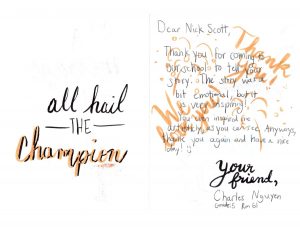 all hail
THE
Champion
Dear Nick Scott,
Thank you for coming to
our school to tell your
story. The story was a
bit emotional, but it
is very inspiring!
You even inspired me
as you can see. Anyways,
thank you again and have a nice
day!
Thank you
your
friend,
Charles Nguyen
Grade:5 Rm 61